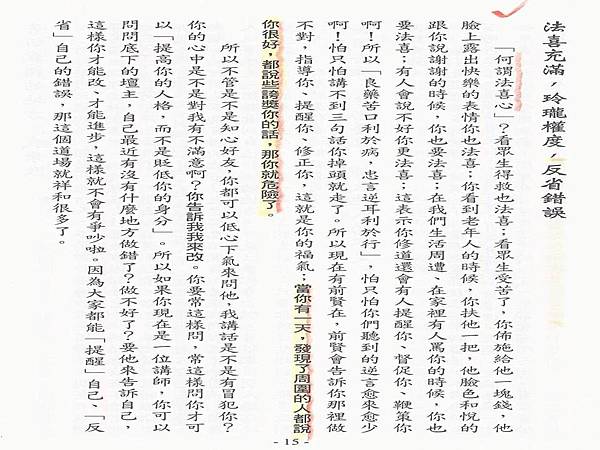 法喜充滿,玲瓏權度,反省錯誤
「何謂法喜心」?看眾生得救也法喜;看眾生受苦了,你佈施給他一塊錢,他
臉上露出快樂的表情你也法喜;你看到老年人的時候,你扶他一把,他臉色和悅的
跟你說謝謝的時候,你也要法喜;在我們生活周遭、在家裡有人罵你的時候,你也
要法喜;有人會說不好你更法喜;這表示你修道還會有人提醒你、督促你、鞭策你
啊!所以「良藥苦口利於病,忠言逆耳利於行」,怕只怕你們聽到的逆言愈來愈少
啊!怕只怕講不到三句話你掉頭就走了。所以現在有前賢在,前賢會告訴你那裡做
不對,指導你、提醒你、修正你,這就是你的福氣;當你有一天,發現了周圍的人都說
你很好,都說些誇獎你的話,那你就危險了。
所以不管是不是知心好友,你都可以低心下氣來問他,我講話是不是有冒犯你?
你的心中是不是對我有不滿意啊?你告訴我我來改。你要常這樣問,常這樣問你才可
以「提高你的人格,而不是貶低你的身分」。所以如果你現在是一位講師,你可以
問問底下的壇主,自己最近有沒有什麼地方做錯了?做不好了?要他來告訴自己,
這樣你才能改、才能進步,這樣就不會有爭吵啦。因為大家都能「提醒」自己、「反
省」自己的錯誤,那這個道場就祥和很多了。
- 15 -